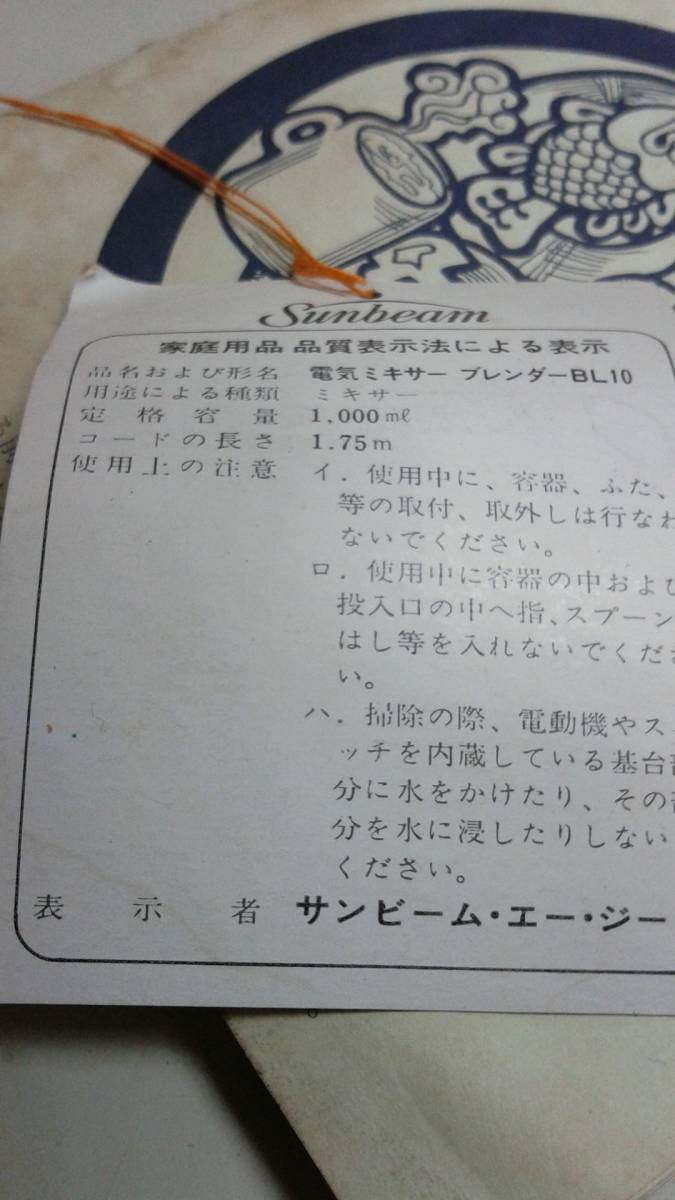 Sunbeam
家庭用品 品質表示法による表示
品名および形名 電気ミキサー ブレンダーBL10
用途による種類 ミキサー
定格容量 1,000㎖
コードの長さ 1.75m
使用上の注意 イ．使用中に、容器、ふた、
等の取付、取外しは行なわ
ないでください。
ロ．使用中に容器の中および
投入口の中へ指、スプーン
はし等を入れないでくださ
い。
ハ．掃除の際、電動機やス
ッチを内蔵している基台部
分に水をかけたり、その部
分を水に浸したりしない
ください。
表示者 サンビーム・エー・ジー